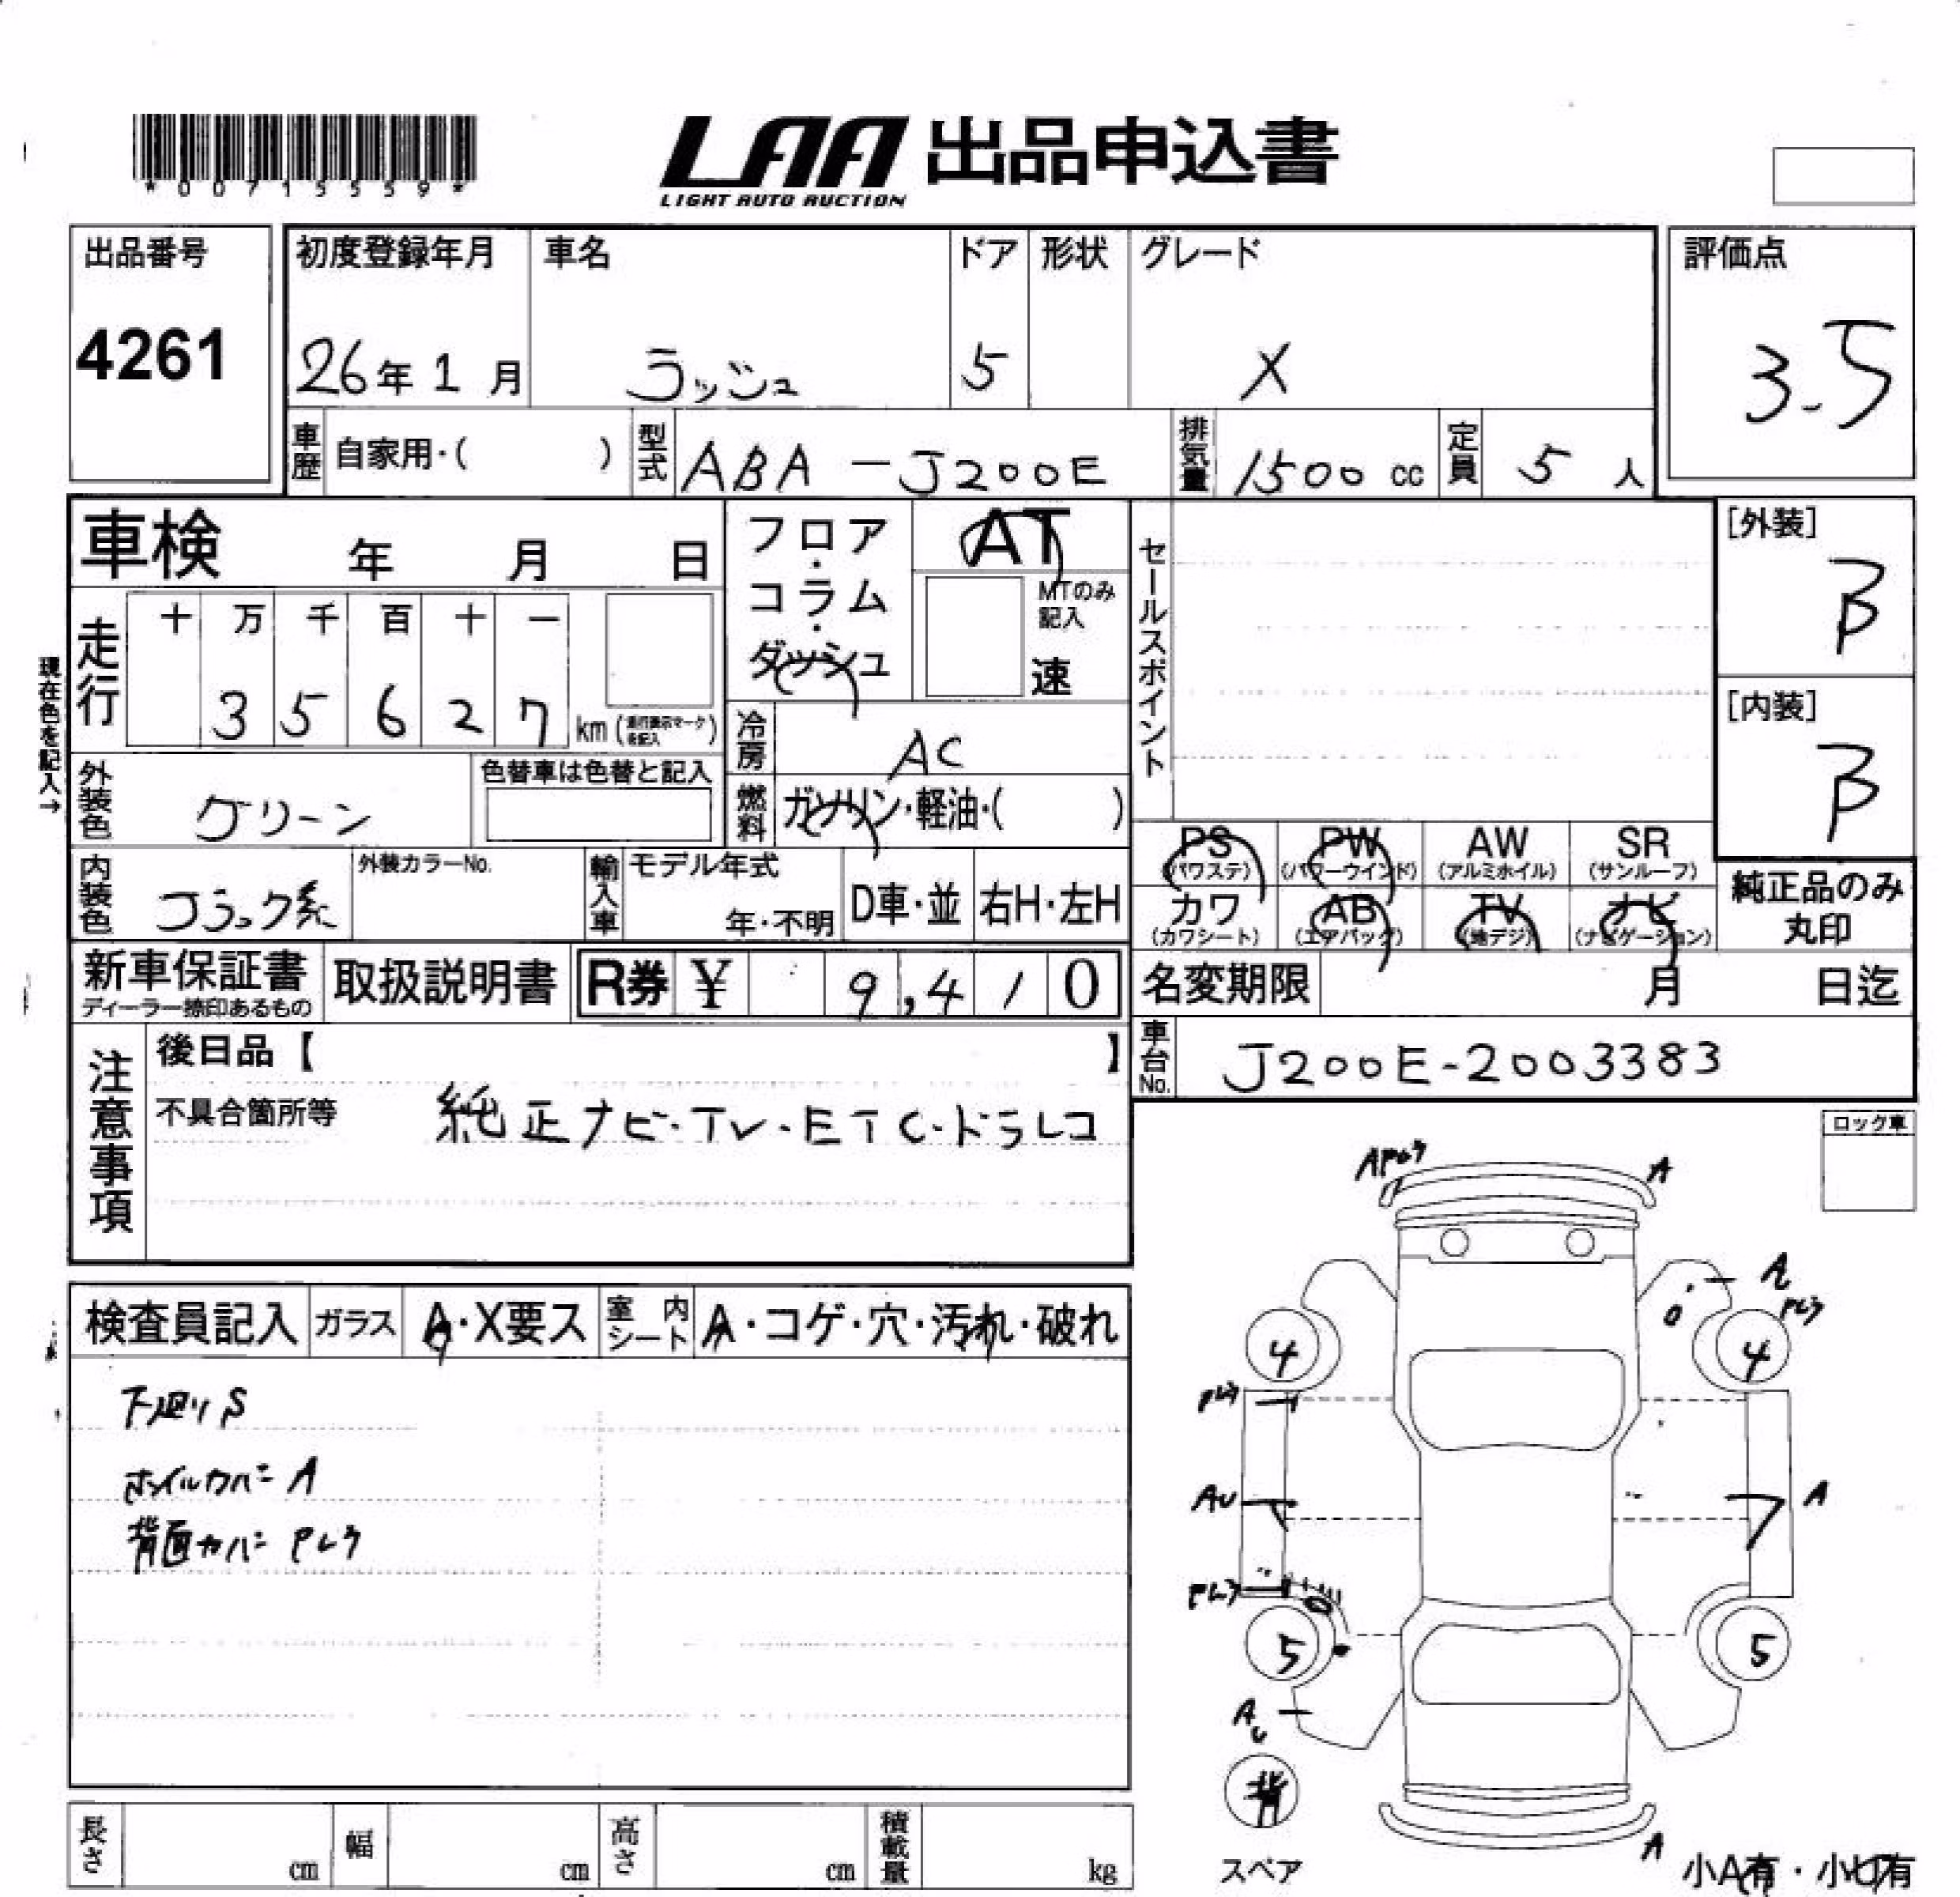 *00715559*
LAA 出品申込書
LIGHT AUTO AUCTION
出品番号 4261
初度登録年月 26年 1月
車名 ラッシュ
ドア 5
形状
グレード X
評価点 3.5
車歴 自家用・( )
型式 ABA-J200E
排気量 1500 cc
定員 5 人
車検 年 月 日
フロア・コラム・ダッシュ
AT
MTのみ記入
速
セールスポイント
[外装] B
[内装] B
現在色を記入→
走行 十 万 千 百 十 一
3 5 6 2 7 km (走行表示マークを記入)
冷房 AC
外装色 グリーン
色替車は色替と記入
燃料 ガソリン・軽油・( )
内装色 ブラック系
外装カラーNo.
輸入車 モデル年式 年・不明
D車・並 右H・左H
PS (パワステ) PW (パワーウインド) AW (アルミホイル) SR (サンルーフ)
カワ (カワシート) AB (エアバッグ) TV (地デジ) ナビ (ナビゲーション)
純正品のみ丸印
新車保証書
ディーラー捺印あるもの
取扱説明書
R券 ¥ 9,410
名変期限 月 日迄
車台No. J200E-2003383
注意事項
後日品【 】
不具合箇所等 純正ナビ・TV・ETC・ドラレコ
ロック車
検査員記入 ガラス A・X要ス 室内シート A・コゲ・穴・汚れ・破れ
下廻りS
ホイルカバー A
背面カバー Pレタ
APレタ A
A
Pレタ
4 4
Pレタ
AU A
Pレタ
5 5
AU
背
スペア
A
小A有・小U有
長さ cm 幅 cm 高さ cm 積載量 kg